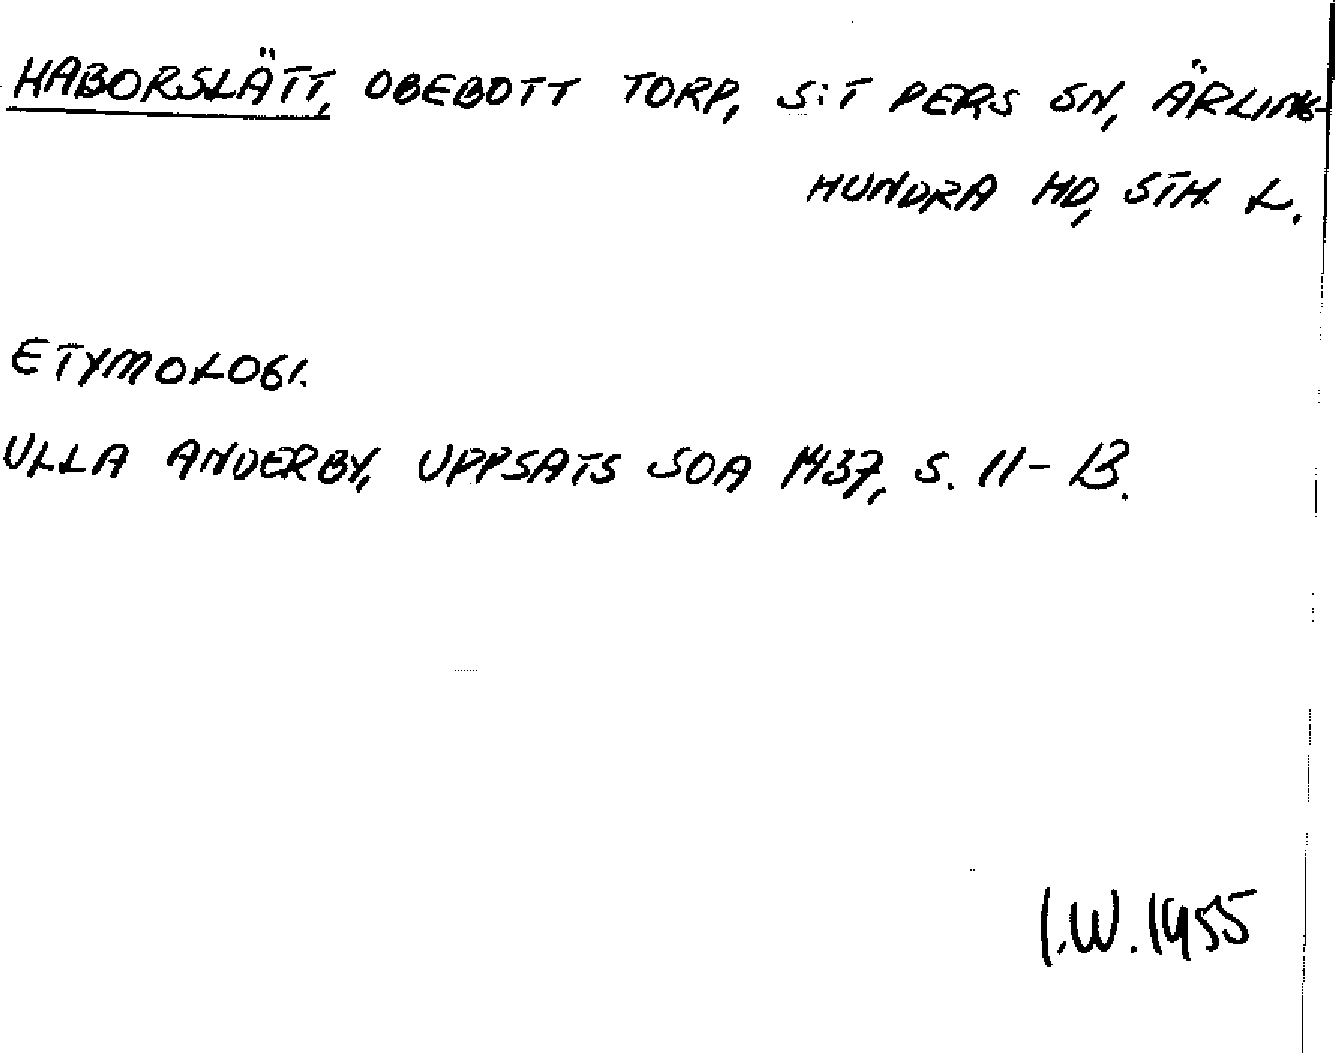 HABORSLÄTT, OBEBOTT TORP, S:T PERS SN, ÄRLING-
HUNDRA HD, STH. L.
ETYMOLOGI.
ULLA ANDERBY, UPPSATS SOA 1437, S. 11-13.
I.W. 1955